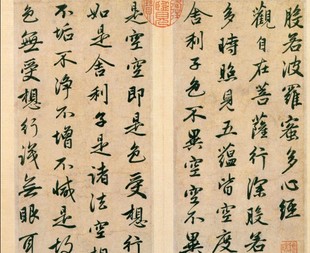 般若波羅蜜多心經
觀自在菩薩行深般若
多時照見五蘊皆空度
舍利子色不異空空不異
是空空即是色受想行
如是舍利子是諸法空相
不垢不淨不增不減是故
色無受想行識無眼耳